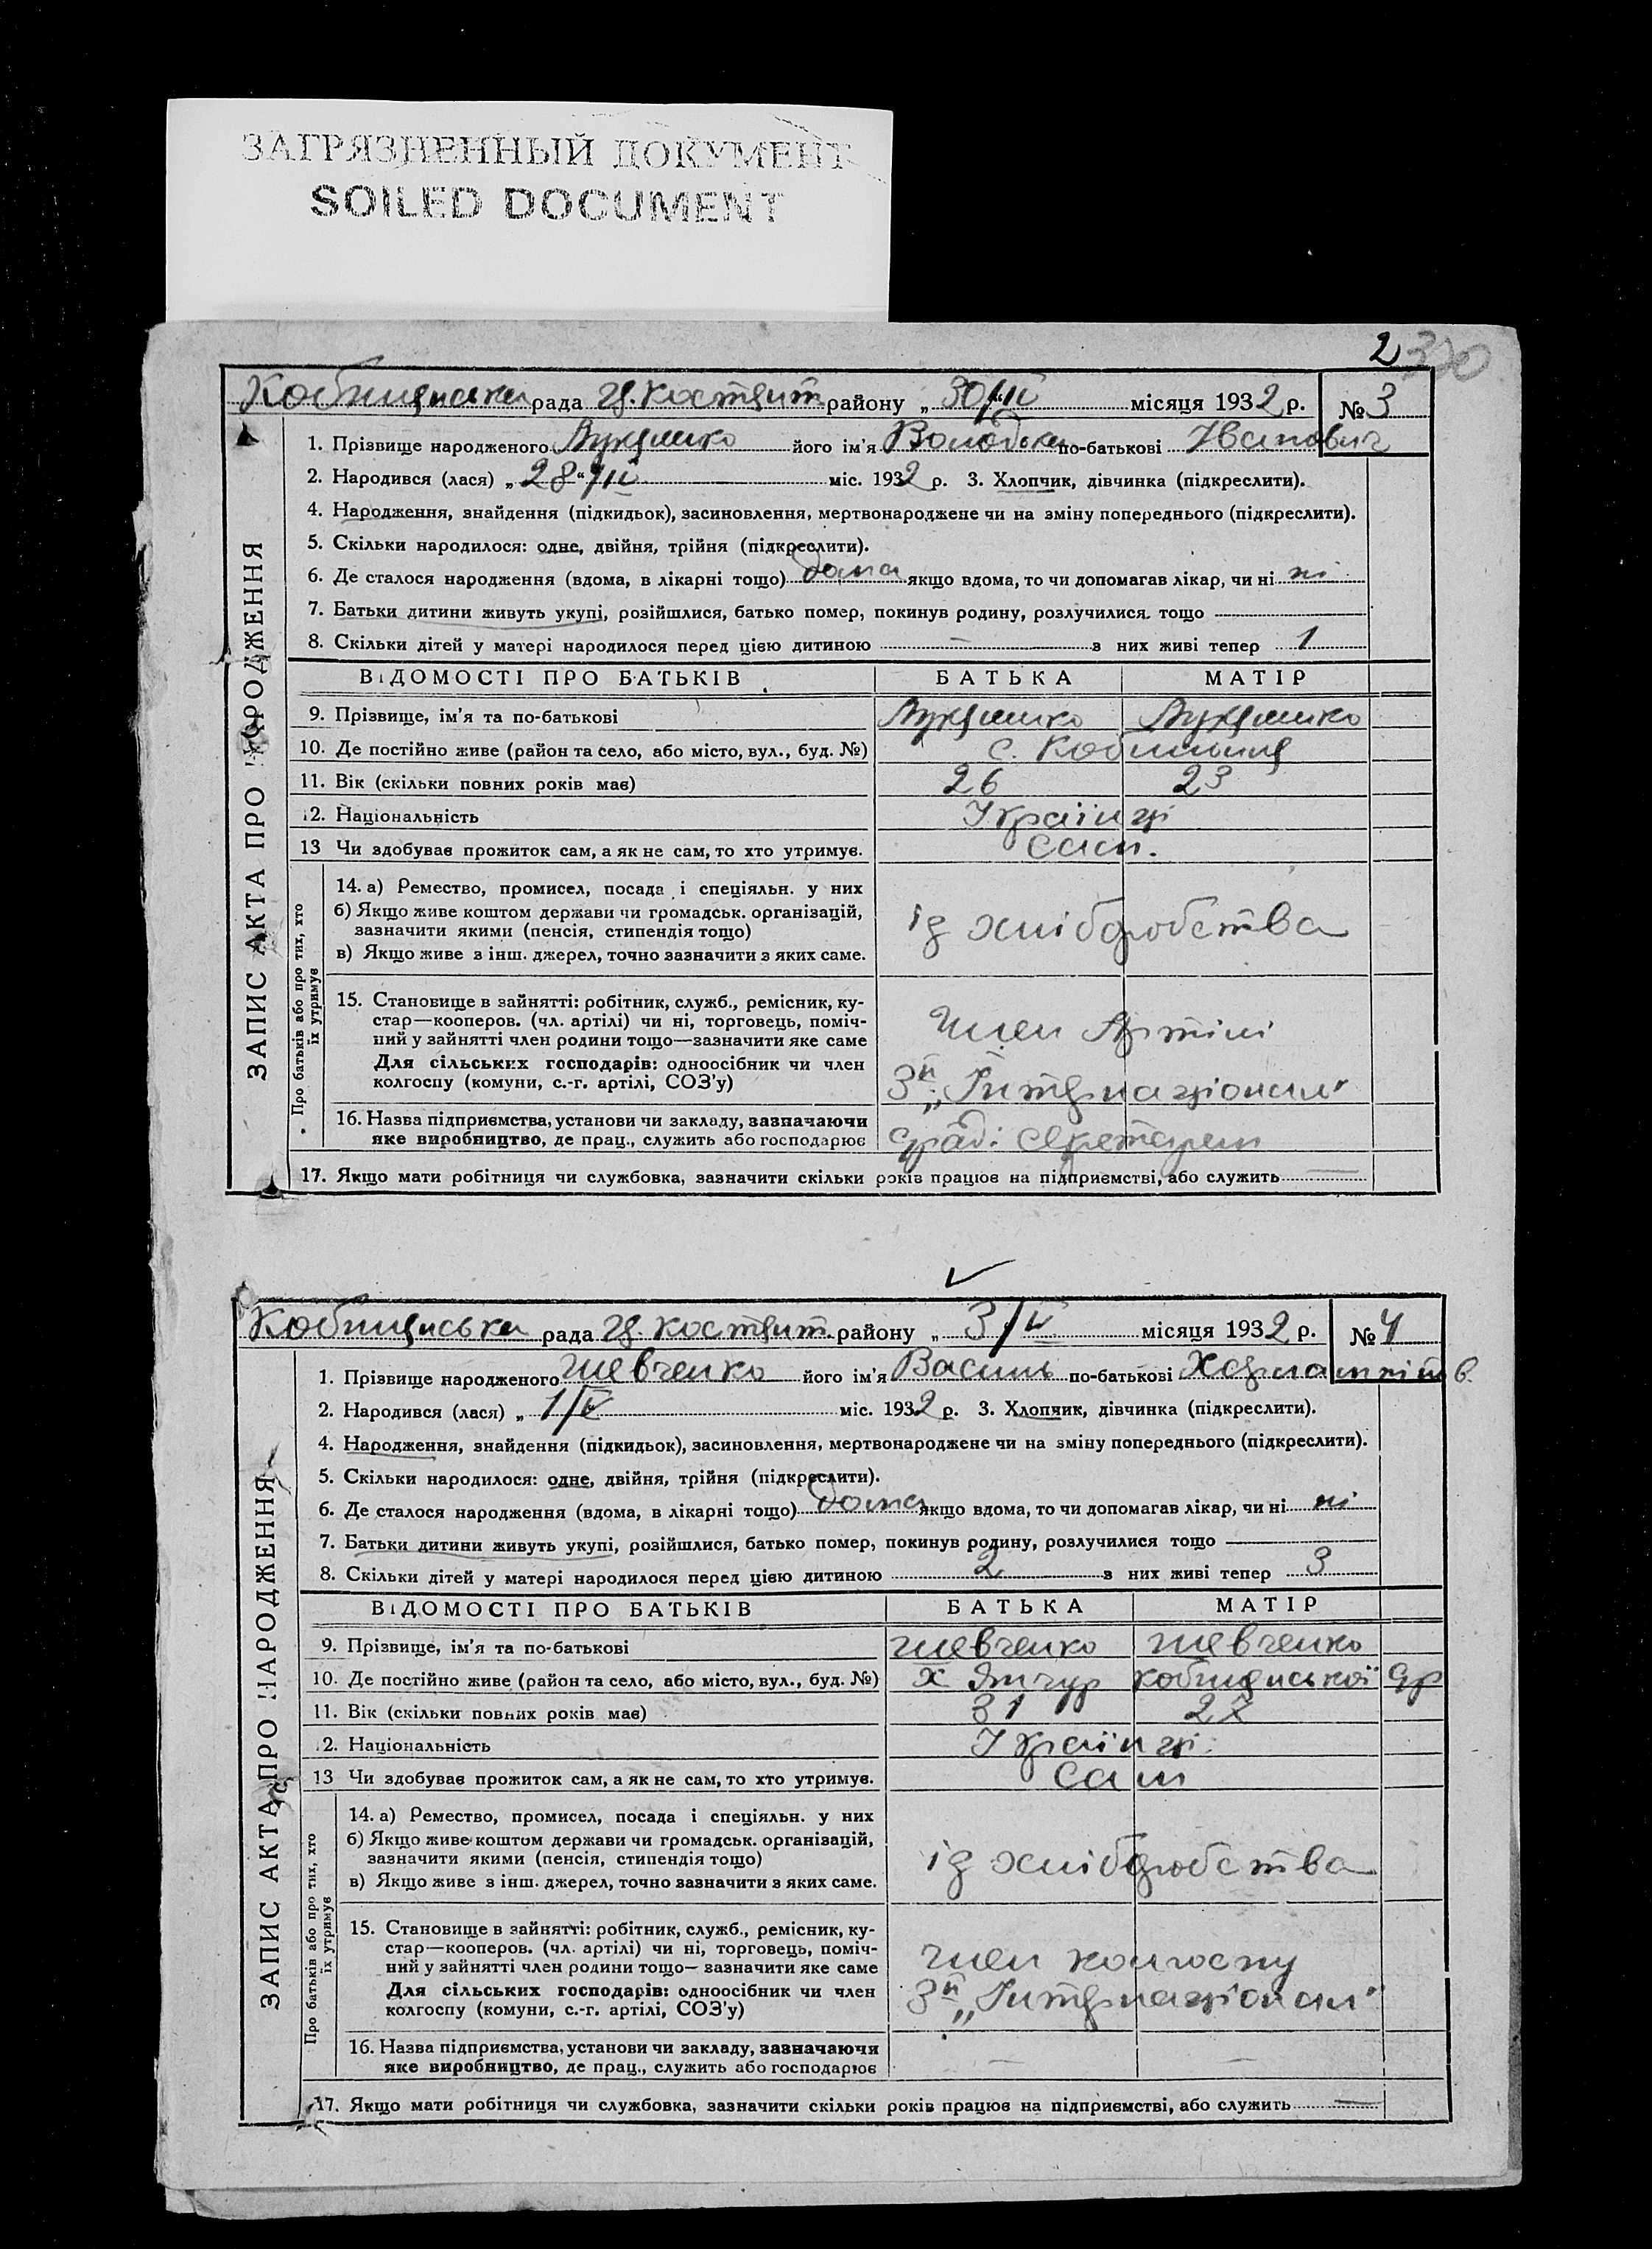 ЗАГРЯЗНЕННЫЙ ДОКУМЕНТ
SOILED DOCUMENT
2 320
рада район у „ 30/ІІІ місяця 1932 р. № 3
1. Прізвище народженого його ім'я по-батькові Іванович
2. Народився (лася) „ 28 “ /ІІІ міс. 1932 р. 3. Хлопчик, дівчинка (підкреслити).
4. Народження, знайдення (підкидьок), засиновлення, мертвонароджене чи на зміну попереднього (підкреслити).
5. Скільки народилося: одне, двійня, трійня (підкреслити).
6. Де сталося народження (вдома, в лікарні тощо) дома якщо вдома, то чи допомагав лікар, чи ні ні
7. Батьки дитини живуть укупі, розійшлися, батько помер, покинув родину, розлучилися тощо —
8. Скільки дітей у матері народилося перед цією дитиною — з них живі тепер 1
ВІДОМОСТІ ПРО БАТЬКІВ БАТЬКА МАТІР
9. Прізвище, ім'я та по-батькові
10. Де постійно живе (район та село, або місто, вул., буд. №) с.
11. Вік (скільки повних років має) 26 23
12. Національність Українці
13 Чи здобував прожиток сам, а як не сам, то хто утримує. Сам.
14. а) Ремество, промисел, посада і спеціяльн. у них
б) Якщо живе коштом держави чи громадськ. організацій,
зазначити якими (пенсія, стипендія тощо)
в) Якщо живе з інш. джерел, точно зазначити з яких саме.
із хліборобства
15. Становище в зайнятті: робітник, служб., ремісник, ку-
стар—кооперов. (чл. артілі) чи ні, торговець, поміч-
ний у зайнятті член родини тощо—зазначити яке саме
Для сільських господарів: одноосібник чи член
колгоспу (комуни, с.-г. артілі, СОЗ'у)
член Артілі
3й „Інтернаціонал"
16. Назва підприємства, установи чи закладу, зазначаючи
яке виробництво, де прац., служить або господарює
с/раді секретарем
17. Якщо мати робітниця чи службовка, зазначити скільки років працює на підприємстві, або служить —
ЗАПИС АКТА ПРО НАРОДЖЕННЯ
Про батьків або про тих, хто
їх утримує
рада району „ 3/ІV місяця 1932 р. № 4
1. Прізвище народженого Шевченко його ім'я Василь по-батькові
2. Народився (лася) „ 1/ІV міс. 1932 р. 3. Хлопчик, дівчинка (підкреслити).
4. Народження, знайдення (підкидьок), засиновлення, мертвонароджене чи на зміну попереднього (підкреслити).
5. Скільки народилося: одне, двійня, трійня (підкреслити).
6. Де сталося народження (вдома, в лікарні тощо) дома якщо вдома, то чи допомагав лікар, чи ні ні
7. Батьки дитини живуть укупі, розійшлися, батько помер, покинув родину, розлучилися тощо —
8. Скільки дітей у матері народилося перед цією дитиною 2 з них живі тепер 3
ВІДОМОСТІ ПРО БАТЬКІВ БАТЬКА МАТІР
9. Прізвище, ім'я та по-батькові Шевченко Шевченко
10. Де постійно живе (район та село, або місто, вул., буд. №) х Янчур с/р
11. Вік (скільки повних років має) 31 27
12. Національність Українці
13 Чи здобував прожиток сам, а як не сам, то хто утримує. Сам
14. а) Ремество, промисел, посада і спеціяльн. у них
б) Якщо живе коштом держави чи громадськ. організацій,
зазначити якими (пенсія, стипендія тощо)
в) Якщо живе з інш. джерел, точно зазначити з яких саме.
із хліборобства
15. Становище в зайнятті: робітник, служб., ремісник, ку-
стар—кооперов. (чл. артілі) чи ні, торговець, поміч-
ний у зайнятті член родини тощо—зазначити яке саме
Для сільських господарів: одноосібник чи член
колгоспу (комуни, с.-г. артілі, СОЗ'у)
член колгоспу
3й „Інтернаціонал"
16. Назва підприємства, установи чи закладу, зазначаючи
яке виробництво, де прац., служить або господарює
— —
17. Якщо мати робітниця чи службовка, зазначити скільки років працює на підприємстві, або служить —
ЗАПИС АКТА ПРО НАРОДЖЕННЯ
Про батьків або про тих, хто
їх утримує